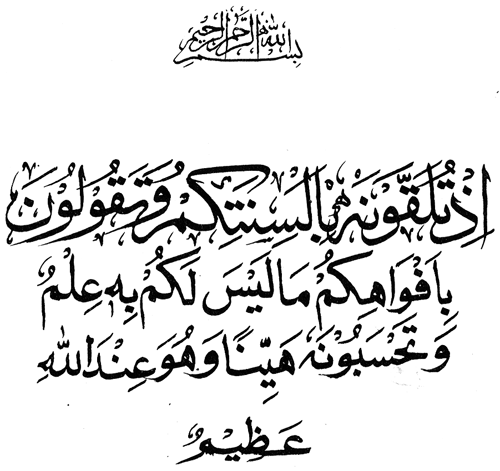 بِسْمِ اللهِ الرَّحْمٰنِ الرَّحِيْمِ
اِذْ تَلَقَّوْنَهٗ بِاَلْسِنَتِكُمْ وَتَقُوْلُوْنَ
بِاَفْوَاهِكُمْ مَا لَيْسَ لَكُمْ بِهٖ عِلْمٌ
وَتَحْسَبُوْنَهٗ هَيِّنًا وَهُوَ عِنْدَ اللهِ
عَظِيْمٌ